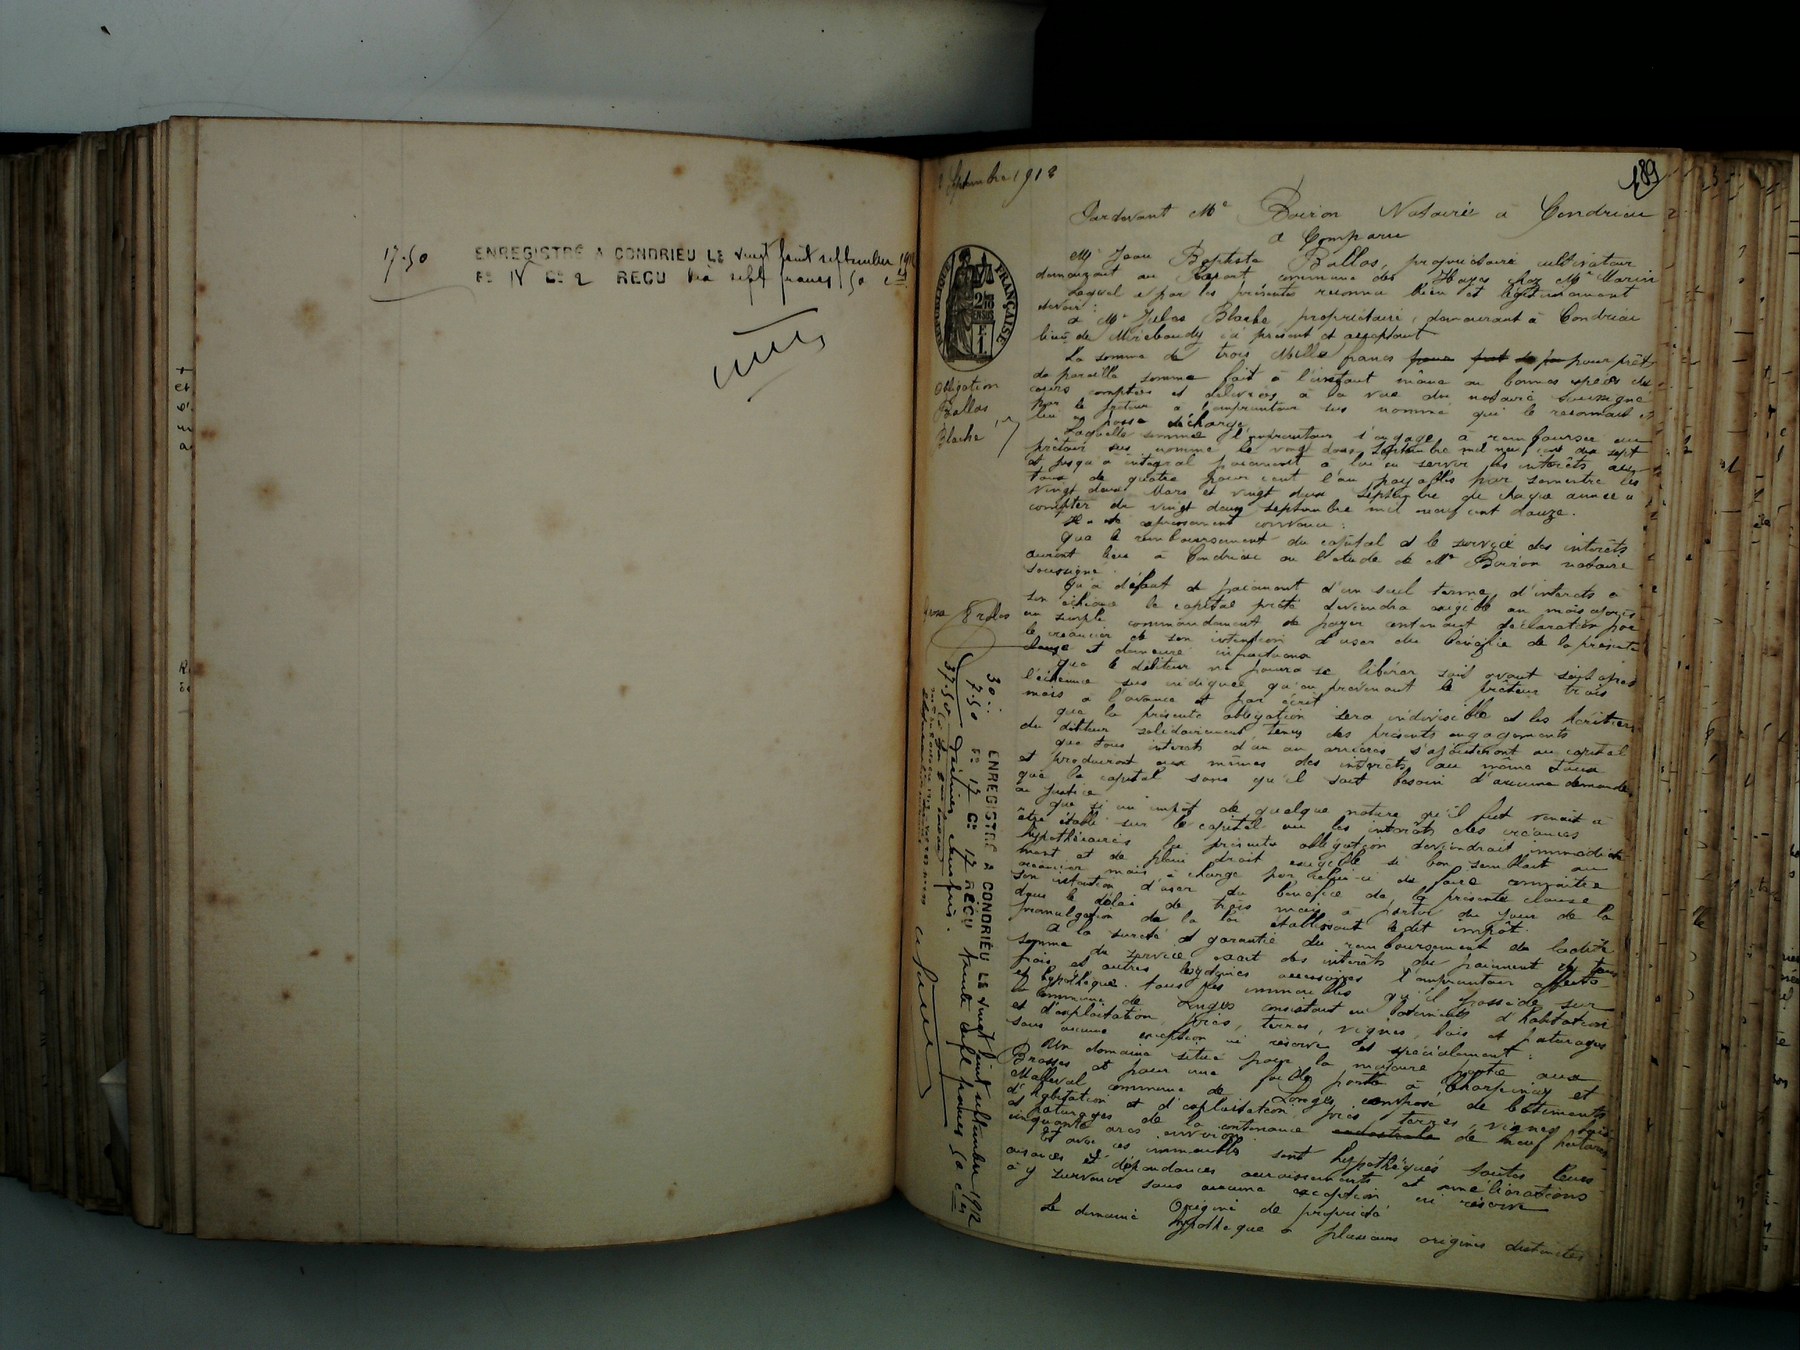 17.50
ENREGISTRÉ A CONDRIEU LE vingt huit septembre 1912
Fo 15 Co 2 REÇU dix sept francs 50 c
septembre 1912
189
Pardevant Me Boiron Notaire à Condrieu
a Comparu
Mr Jean Baptiste Ballas, propriétaire cultivateur
demeurant au commune des Hayes chez Mr Marcin
Lequel a par les présentes reconnu bien et légitimement
devoir :
à Mr Jules Blache, propriétaire, demeurant à Condrieu
lieu de ici présent et acceptant
La somme de trois Mille francs pour prêt
de pareille somme fait à l'instant même en bonnes espèces de
cours comptées et délivrées à la vue du notaire soussigné
par le prêteur à l'emprunteur sus nommé qui le reconnait et
lui en passe décharge.
Laquelle somme l'emprunteur s'engage à rembourser au
prêteur sus nommé le vingt deux septembre mil neuf cent dix sept
et jusqu'à intégral paiement à lui en servir les intérêts au
taux de quatre pour cent l'an payables par semestre les
vingt deux Mars et vingt deux septembre de chaque année à
compter du vingt deux septembre mil neuf cent douze.
Il est expressément convenu :
Que le remboursement du capital et le service des intérêts
auront lieu à Condrieu en l'étude de Me Boiron notaire
soussigné.
Qu'à défaut de paiement d'un seul terme d'intérêts à
son échéance le capital prêté deviendra exigible un mois après
un simple commandement de payer contenant déclaration par
le créancier de son intention d'user du bénéfice de la présente
clause et demeuré infructueux
Que le débiteur ne pourra se libérer soit avant soit après
l'échéance sus indiquée qu'en prévenant le prêteur trois
mois à l'avance et par écrit
Que la présente obligation sera indivisible et les héritiers
du débiteur solidairement tenus des présents engagements
Que tous intérêts d'un an arriérés s'ajouteront au capital
et produiront eux mêmes des intérêts au même taux
que le capital sans qu'il soit besoin d'aucune demande
en justice
Que si un impôt de quelque nature qu'il fut venait à
être établi sur le capital ou les intérêts des créances
hypothécaires la présente obligation deviendrait immédiate
ment et de plein droit exigible si bon semblait au
créancier mais à charge par celui-ci de faire connaître
son intention d'user du bénéfice de la présente clause
dans le délai de trois mois à partir du jour de la
promulgation de la loi établissant le dit impôt.
A la sureté et garantie du remboursement de ladite
somme du service exact des intérêts du paiement de tous
frais et autres loyaux accessoires l'emprunteur affecte
et hypothèque tous les immeubles qu'il possède sur
la Commune de Longes consistant en batiments d'habitation
et d'exploitation, près, terres, vignes, bois et paturages
sans aucune exception ni réserve et spécialement :
Un domaine situé pour la majeure partie aux
Brosses et pour une faible partie à Charpenay et
Malleval commune de Longes composé de bâtiments
d'habitation et d'exploitation, près terres, vignes bois
et paturages de la contenance cadastrale de neuf hectares
cinquante ares environ
Et avec ces immeubles sont hypothéqués toutes leurs
aisances et dépendances accroissements et améliorations
à y survenir sans aucune exception ni réserve
Origine de propriété
Le domaine hypothéqué a plusieurs origines distinctes
RÉPUBLIQUE FRANÇAISE
Obligation
Ballas
à
Blache
30..
7.50
37.50
ENREGISTRÉ A CONDRIEU LE vingt huit septembre 1912
Fo 17 Co 17 REÇU trente sept francs 50 ces